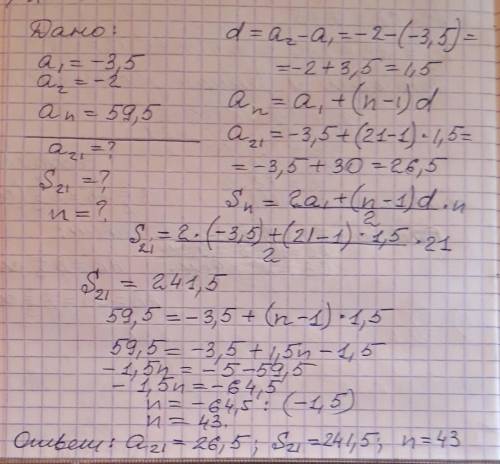 Дано:
a₁ = -3,5
a₂ = -2
aₙ = 59,5
a₂₁ = ?
S₂₁ = ?
n = ?
d = a₂ - a₁ = -2 - (-3,5) =
= -2 + 3,5 = 1,5
aₙ = a₁ + (n-1)d
a₂₁ = -3,5 + (21-1)·1,5 =
= -3,5 + 30 = 26,5
Sₙ = (2a₁ + (n-1)d)/2 · n
S₂₁ = (2·(-3,5) + (21-1)·1,5)/2 · 21
S₂₁ = 241,5
59,5 = -3,5 + (n-1)·1,5
59,5 = -3,5 + 1,5n - 1,5
-1,5n = -5 - 59,5
-1,5n = -64,5
n = -64,5 : (-1,5)
n = 43.
Ответ: a₂₁ = 26,5; S₂₁ = 241,5; n = 43